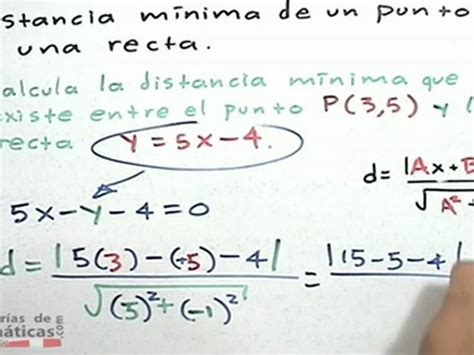 stancia mínima de un punto
una recta.
alcula la distancia mínima que
existe entre el punto P(3,5) y l
recta y = 5x - 4.
d = |Ax + B
√A² +
5x - y - 4 = 0
d = |5(3) - (+5) - 4| / √(5)² + (-1)² = |15 - 5 - 4|
rías de
áticas.com